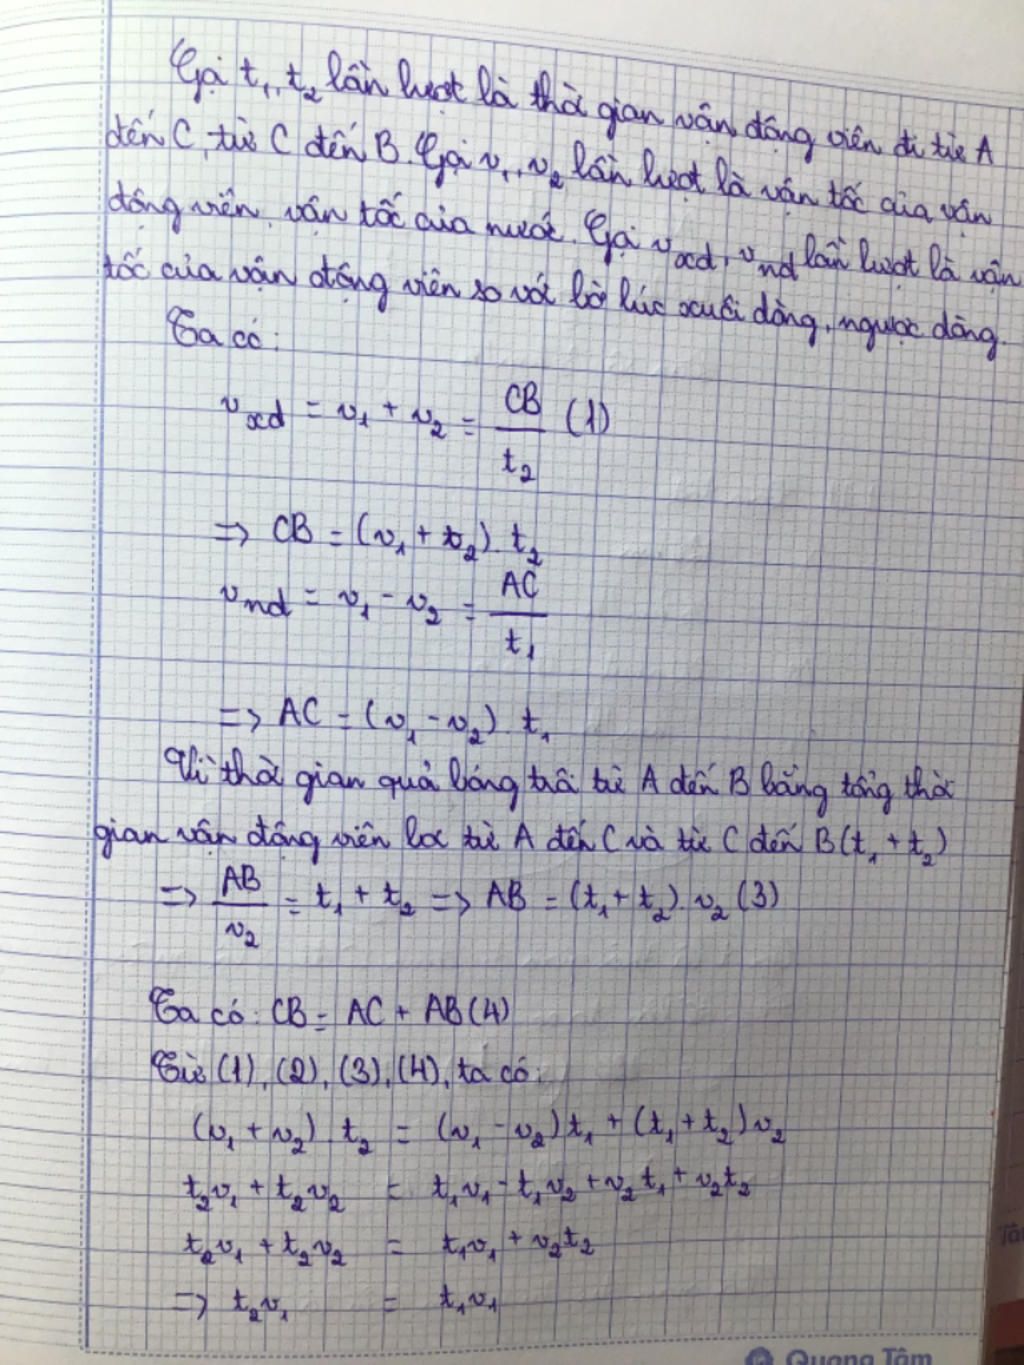 Gọi t₁, t₂ lần lượt là thời gian vận động viên đi từ A
đến C, từ C đến B. Gọi v₁, v₂ lần lượt là vận tốc của vận
động viên, vận tốc của nước. Gọi v_xd, v_nd lần lượt là vận
tốc của vận động viên so với bờ lúc xuôi dòng, ngược dòng.
Ta có:
v_xd = v₁ + v₂ = CB/t₂ (1)
=> CB = (v₁ + v₂). t₂
v_nd = v₁ - v₂ = AC/t₁
=> AC = (v₁ - v₂). t₁
Vì thời gian quả bóng trôi từ A đến B bằng tổng thời
gian vận động viên bơi từ A đến C và từ C đến B (t₁ + t₂)
=> AB/v₂ = t₁ + t₂ => AB = (t₁ + t₂). v₂ (3)
Ta có: CB = AC + AB (4)
Từ (1), (2), (3), (4), ta có:
(v₁ + v₂) t₂ = (v₁ - v₂)t₁ + (t₁ + t₂)v₂
t₂v₁ + t₂v₂ = t₁v₁ - t₁v₂ + v₂t₁ + v₂t₂
t₂v₁ + t₂v₂ = t₁v₁ + v₂t₂
=> t₂v₁ = t₁v₁
Quang Tâm